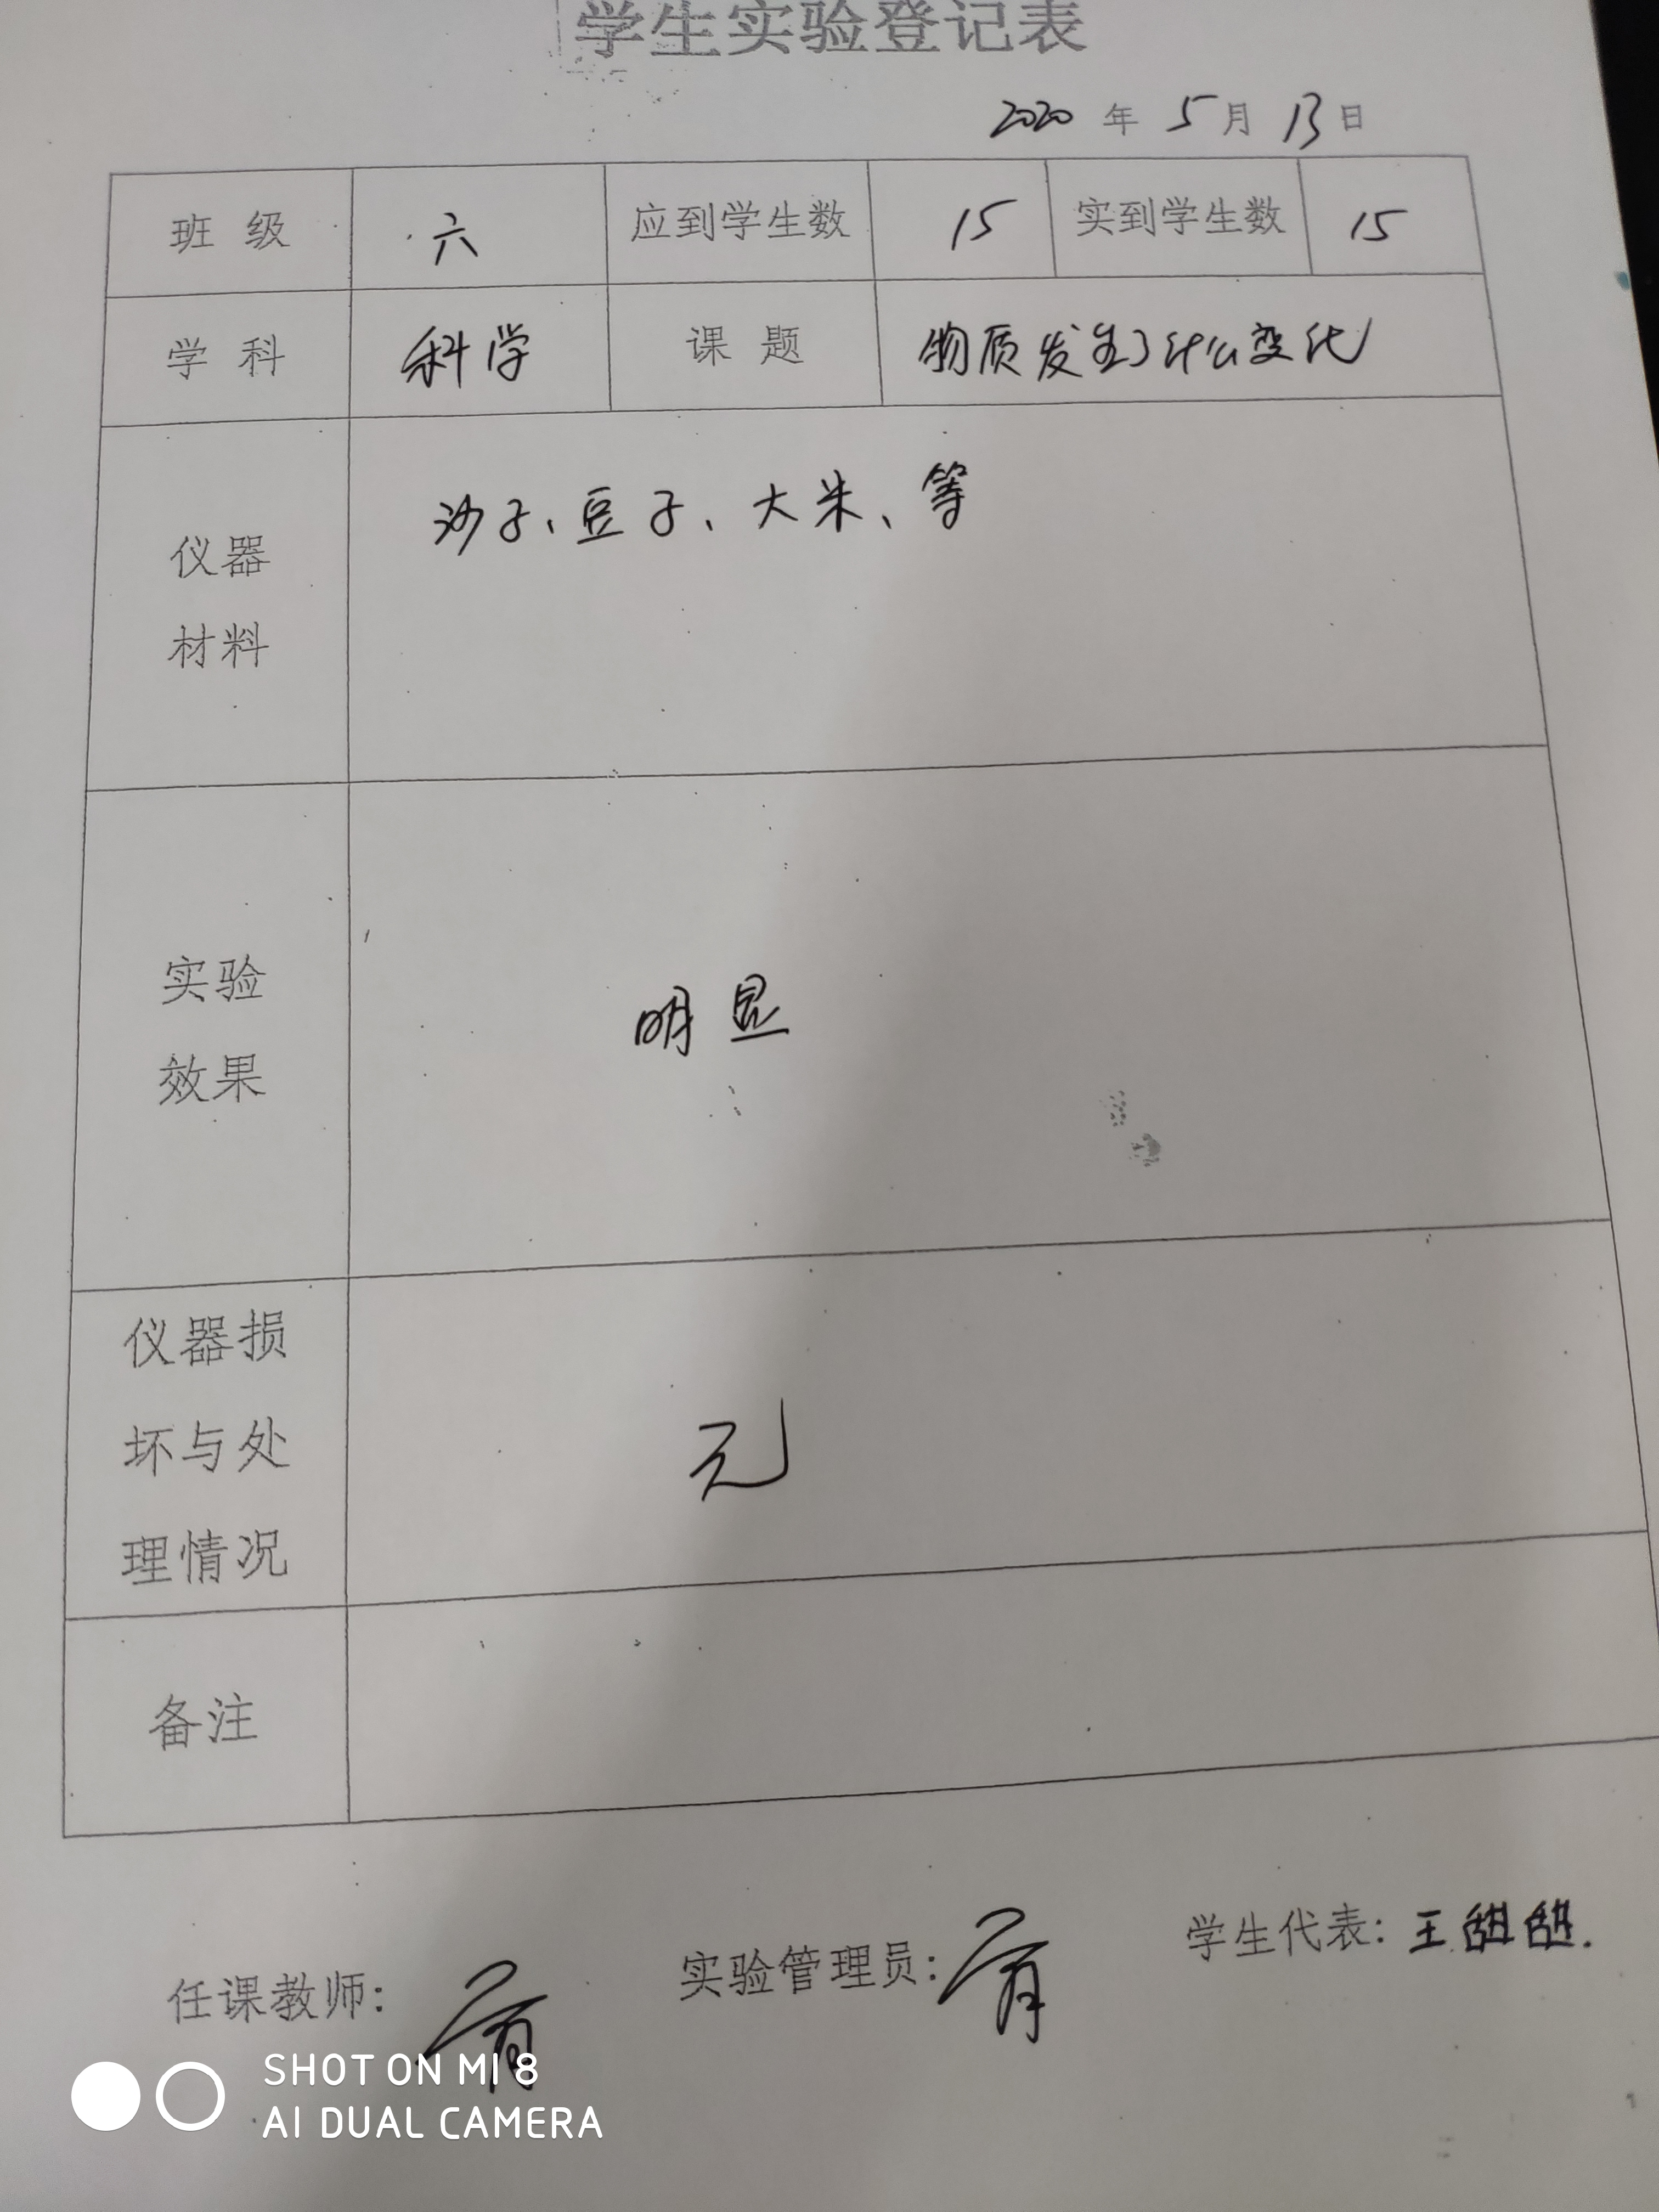 学生实验登记表
2020 年 5 月 13 日
班 级 六 应到学生数 15 实到学生数 15
学 科 科学 课 题 物质发生了什么变化
仪器
材料
沙子、豆子、大米、等
实验
效果
明显
仪器损
坏与处
理情况
无
备注
任课教师: 实验管理员: 学生代表: 王甜甜.
SHOT ON MI 8
AI DUAL CAMERA